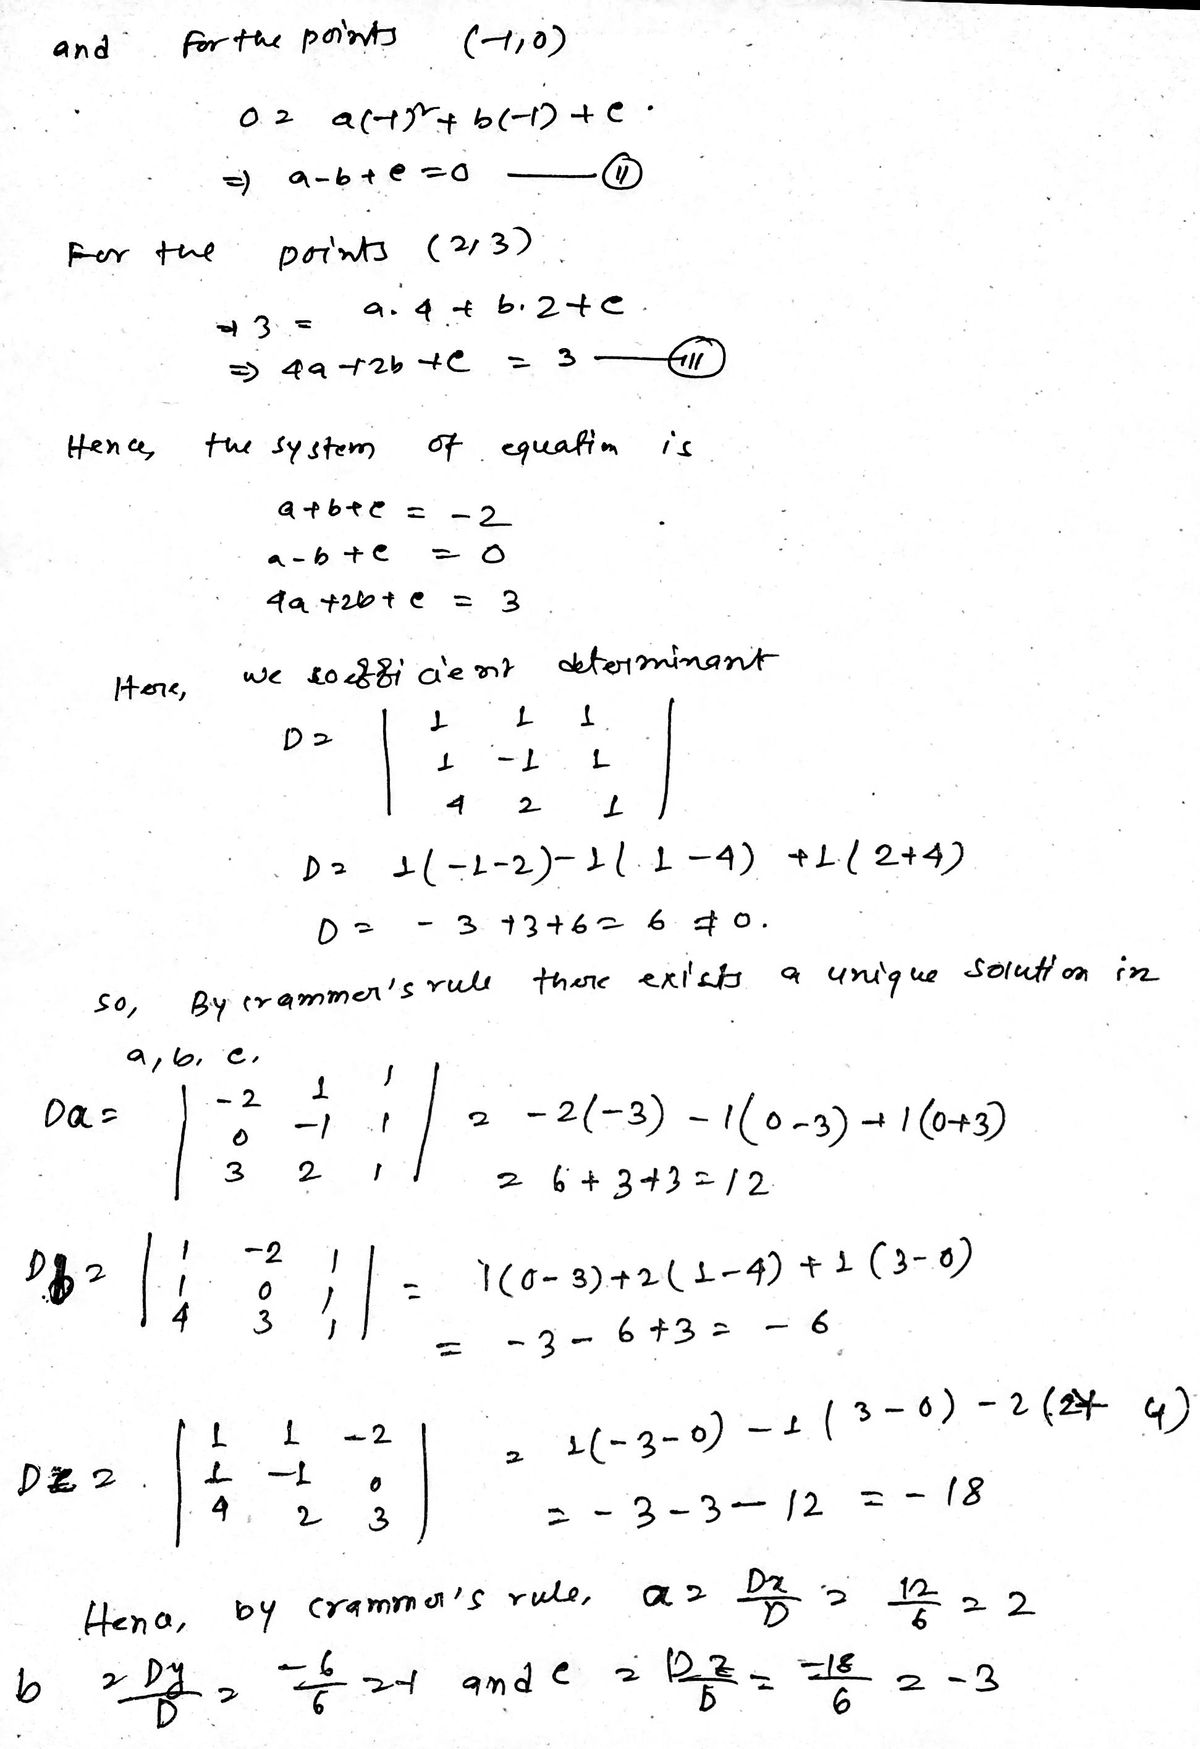 and for the points (-1,0)
0 = a(-1)² + b(-1) + c.
⇒ a-b+c = 0 —— (II)
For the points (2,3)
⇒ 3 = a.4 + b.2 + c.
⇒ 4a+2b+c = 3 —— (III)
Hence, the system of equation is
a+b+c = -2
a-b+c = 0
4a+2b+c = 3
Here, we coefficient determinant
D = | 1 1 1 |
| 1 -1 1 |
| 4 2 1 |
D = 1(-1-2)-1(1-4) +1(2+4)
D = -3+3+6 = 6 ≠ 0.
so, By crammer's rule there exists a unique solution in
a, b, c.
Da = | -2 1 1 | = -2(-3) - 1(0-3) + 1(0+3)
| 0 -1 1 |
| 3 2 1 | = 6+3+3 = 12
Db = | 1 -2 1 | = 1(0-3)+2(1-4)+1(3-0)
| 1 0 1 |
| 4 3 1 | = -3-6+3 = -6
Dz = | 1 1 -2 | = 1(-3-0) -1(3-0) -2(2+4)
| 1 -1 0 |
| 4 2 3 | = -3-3-12 = -18
Hence, by crammer's rule, a = Dx/D = 12/6 = 2
b = Dy/D = -6/6 = -1 and c = Dz/D = -18/6 = -3